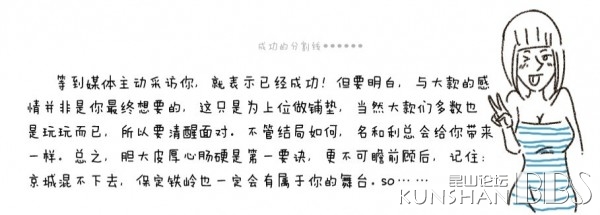 成功的分割线••••••
等到媒体主动采访你，就表示已经成功！但要明白，与大款的感
情并非是你最终想要的，这只是为上位做铺垫，当然大款们多数也
是玩玩而已，所以要清醒面对。不管结局如何，名和利总会给你带来
一样。总之，胆大皮厚心肠硬是第一要诀，更不可瞻前顾后，记住：
京城混不下去，保定铁岭也一定会有属于你的舞台。so……
昆山论坛
KUNSHAN BBS